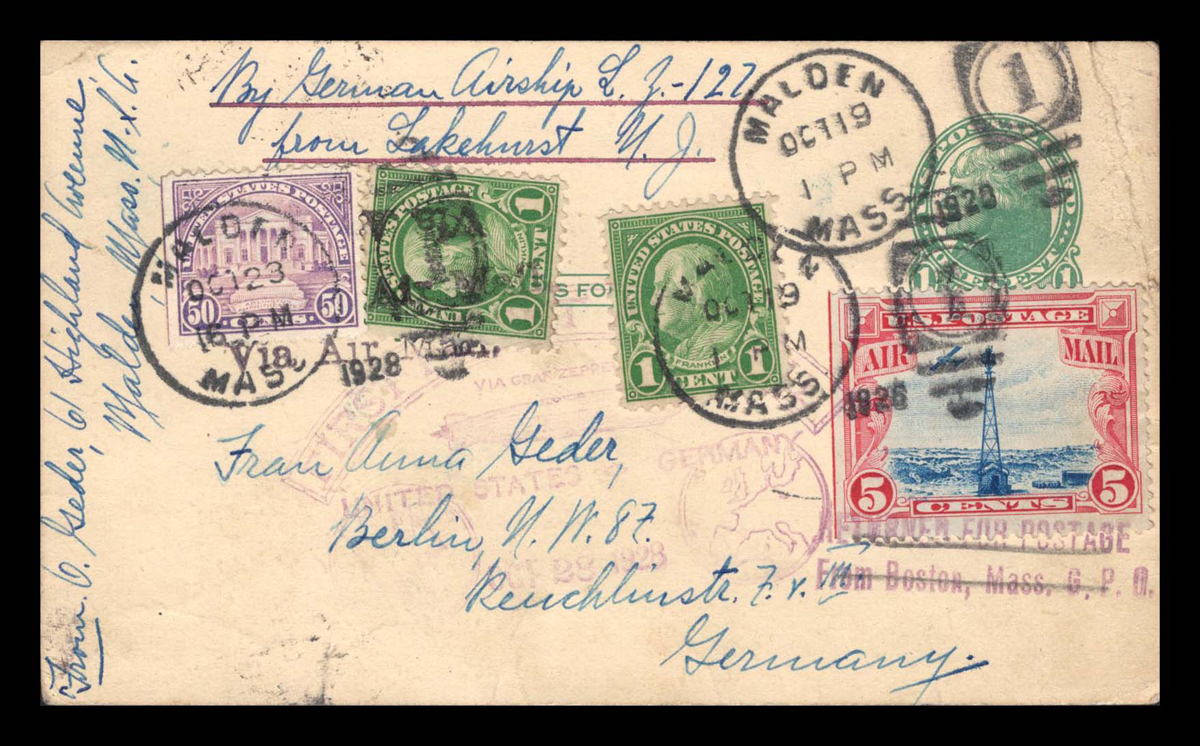 By German Airship L. Z.-127
from Lakehurst N. J.
MALDEN
OCT 19
1 PM
MASS.
1928
1
1
1
UNITED STATES POSTAGE
50 50
CENTS
MALDEN
OCT 23
16 PM
MASS.
1928
VIA
Via Air Mail
1 1
CENT
UNITED STATES POSTAGE
FRANKLIN
1 1
CENT
OCT 19
1 PM
MASS
1928
1
U.S. POSTAGE
AIR MAIL
5 5
CENTS
FIRST
VIA GRAF ZEPPELIN
UNITED STATES
GERMANY
OCT 28 1928
Frau Anna Geder,
Berlin N. W. 87.
Reuchlinstr. 7. v. III
Germany.
RETURNED FOR POSTAGE
From Boston, Mass. G. P. O.
From O. Geder, 61 Highland Avenue
Malden Mass. U.S.A.